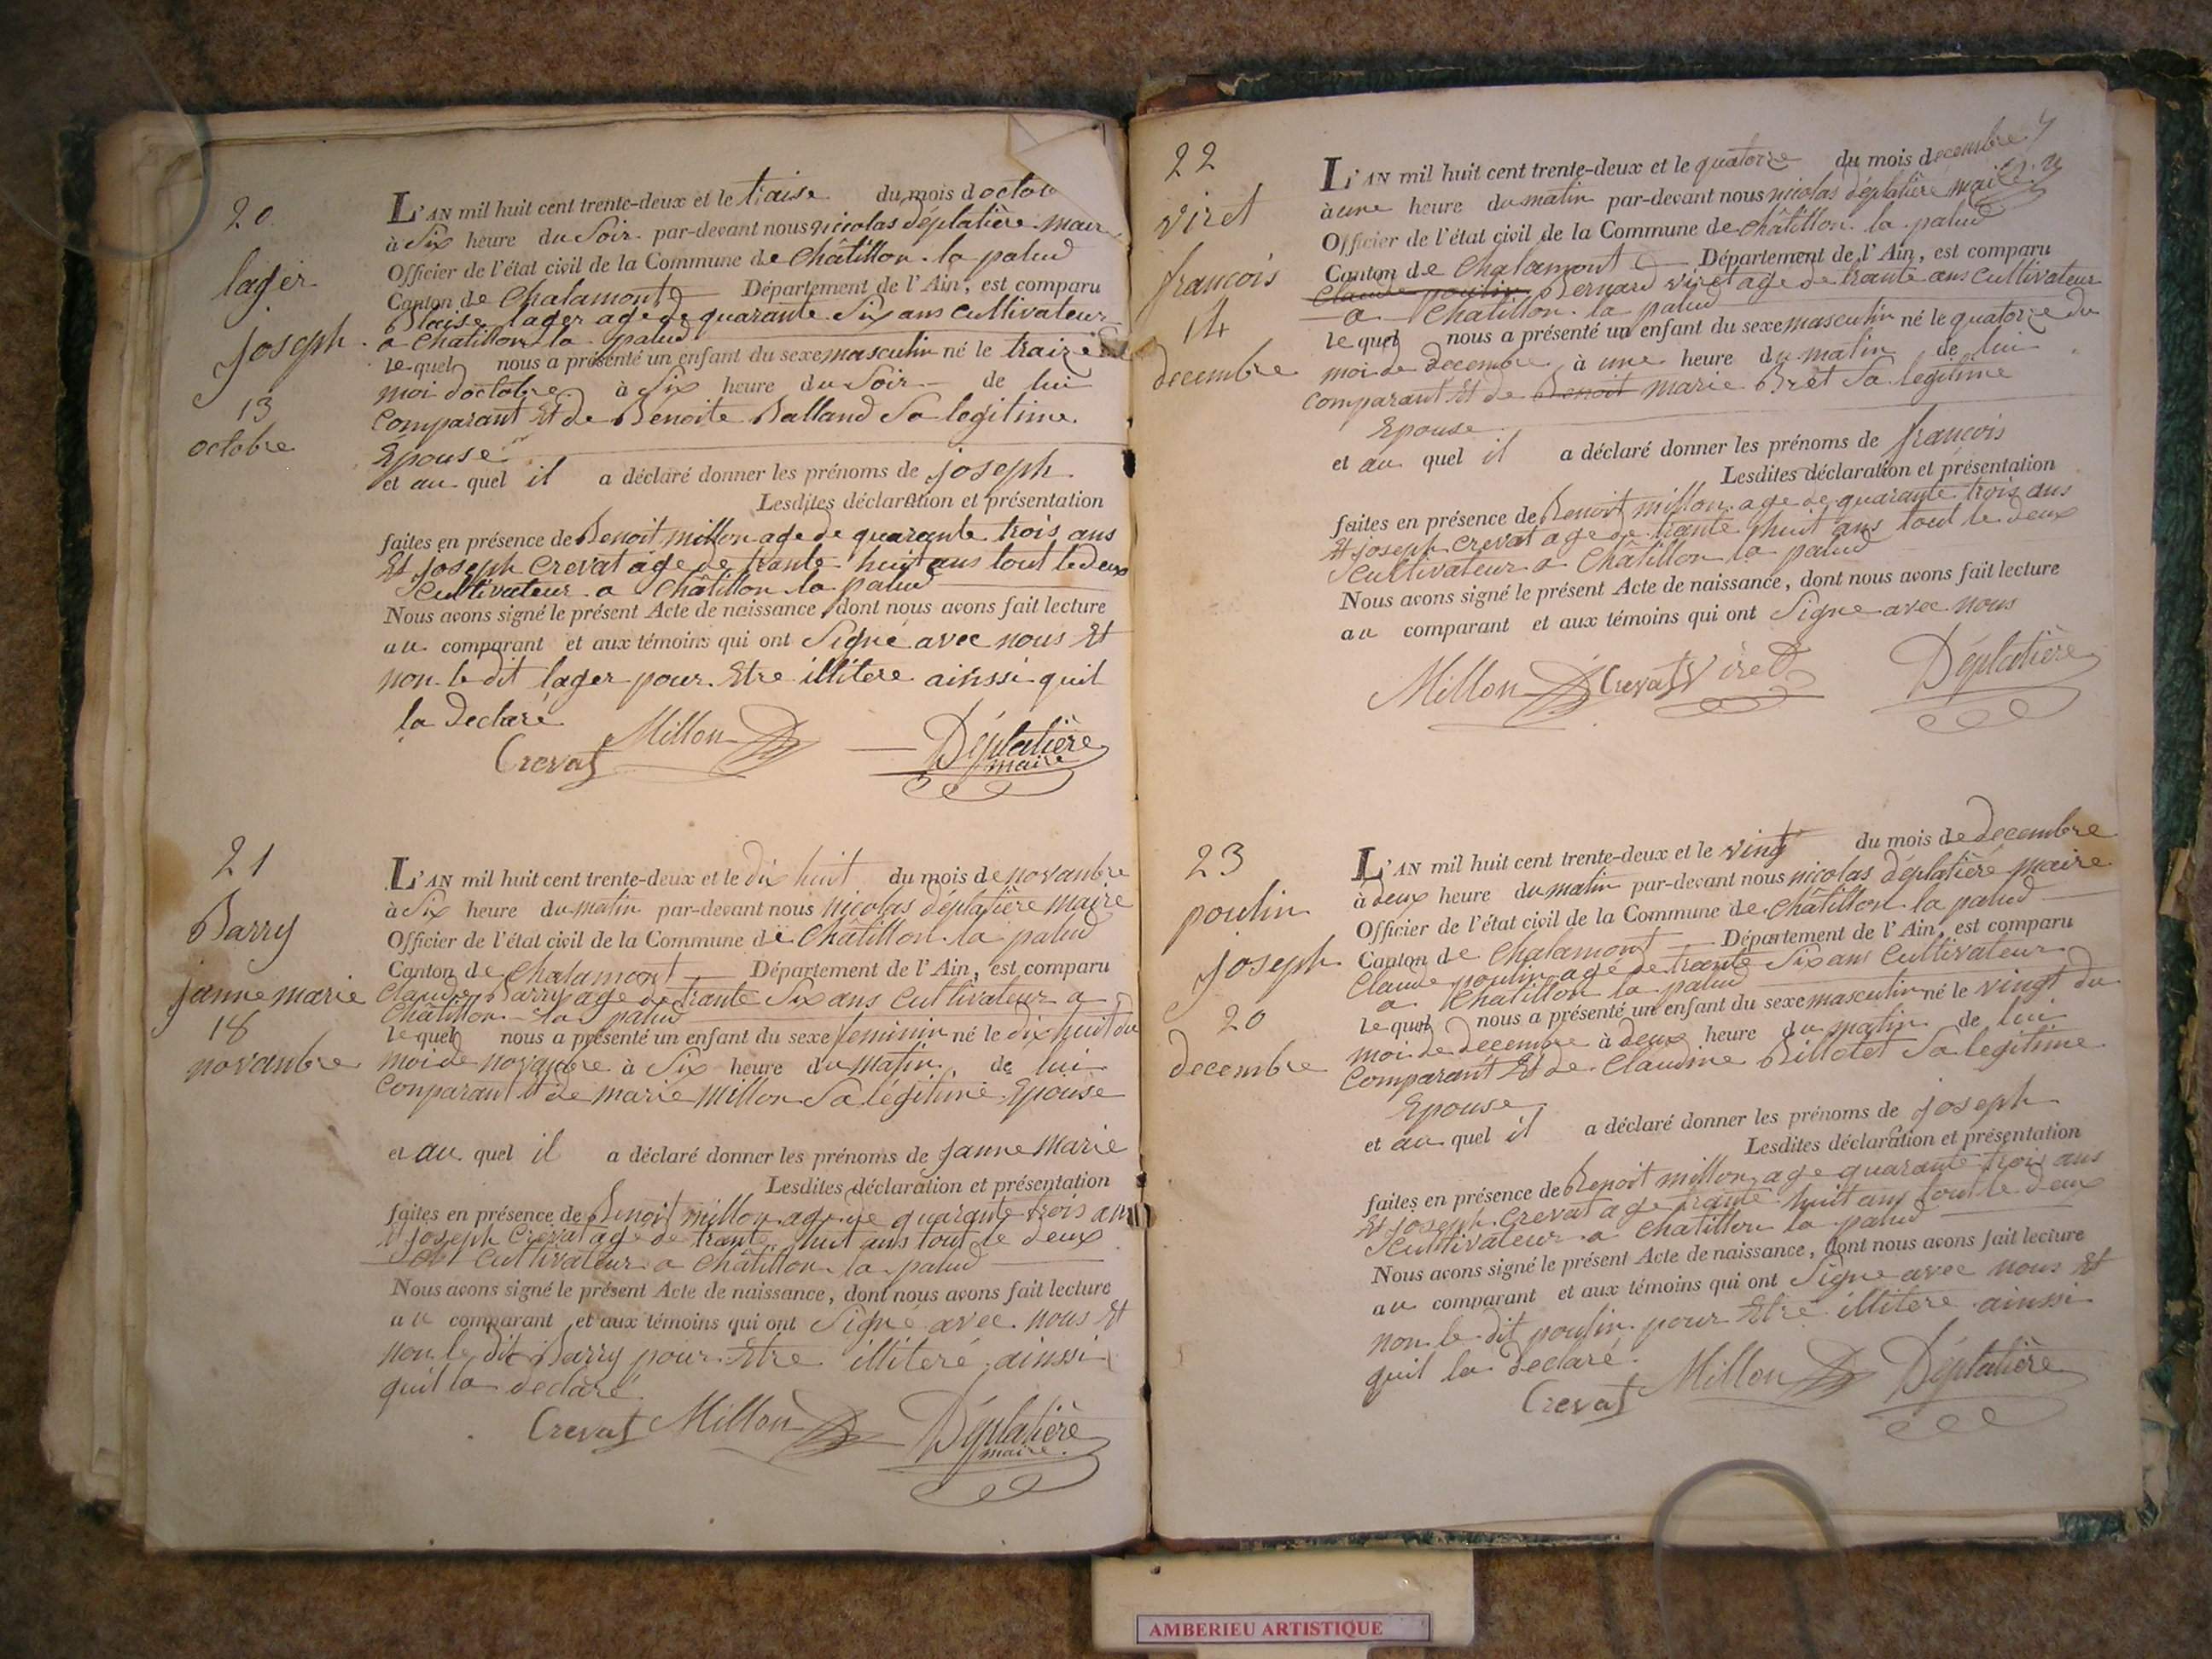 20
lager
joseph
13
octobre
L'AN mil huit cent trente-deux et le traise du mois doctob
à Six heure du Soir par-devant nous nicolas déplatière mair
Officier de l'état civil de la Commune de Châtillon la palud
Canton de Chalamont Département de l'Ain, est comparu
Blaise lager age de quarante Six ans cultivateur
a Châtillon la palud
le quel nous a présenté un enfant du sexe masculin né le traize
moi doctobre à Six heure du Soir de lui
comparant Et de Benoite Balland Sa legitime
Epouse
et au quel il a déclaré donner les prénoms de joseph
Lesdites déclaration et présentation
faites en présence de Benoit millon age de quarante trois ans
Et joseph Crevat age de trante huit ans tout le deux
Cultivateur a Châtillon la palud
Nous avons signé le présent Acte de naissance, dont nous avons fait lecture
au comparant et aux témoins qui ont Signé avec nous Et
non le dit lager pour Etre illitere ainssi quil
la Declaré
Crevat Millon Déplatière
maire
21
Barry
janne marie
18
novanbre
L'AN mil huit cent trente-deux et le dix huit du mois de novanbre
à Six heure du matin par-devant nous nicolas déplatière maire
Officier de l'état civil de la Commune de Châtillon la palud
Canton de Chalamont Département de l'Ain, est comparu
Claude Barry age de trante Six ans Cultivateur a
Châtillon la palud
le quel nous a présenté un enfant du sexe feminin né le dix huit du
moi de novanbre à Six heure du matin de lui
Conparant Et de marie Millon Sa légitime Epouse
et au quel il a déclaré donner les prénoms de janne Marie
Lesdites déclaration et présentation
faites en présence de Benoit millon age de quarante trois ans
Et joseph Crevat age de trante huit ans tout le deux
Cultivateur a Châtillon la palud
Nous avons signé le présent Acte de naissance, dont nous avons fait lecture
au comparant et aux témoins qui ont Signé avec nous Et
non le dit Barry pour Etre illiteré ainssi
quil la declaré
Crevat Millon Déplatière
maire
22
viret
francois
14
decembre
L'AN mil huit cent trente-deux et le quatorze du mois decembre
à une heure du matin par-devant nous nicolas déplatière maire
Officier de l'état civil de la Commune de Châtillon la palud
Canton de Chalamont Département de l'Ain, est comparu
Claude poulin Bernard viret age de trante ans Cultivateur
a Chatillon la palud
le quel nous a présenté un enfant du sexe masculin né le quatorze du
moi de decembre à une heure du matin de lui
comparant Et de Benoit marie Brêt Sa legitime
Epouse
et au quel il a déclaré donner les prénoms de francois
Lesdites déclaration et présentation
faites en présence de Benoit millon age de quarante trois ans
Et joseph Crevat age de trante huit ans tout le deux
Cultivateur a Châtillon la palud
Nous avons signé le présent Acte de naissance, dont nous avons fait lecture
au comparant et aux témoins qui ont Signe avec nous
Millon Crevat Viret Déplatière
23
poulin
joseph
20
decembre
L'AN mil huit cent trente-deux et le vingt du mois de decembre
à deux heure du matin par-devant nous nicolas déplatière maire
Officier de l'état civil de la Commune de Châtillon la palud
Canton de Chalamont Département de l'Ain, est comparu
Claude poulin agé de trante Six ans Cultivateur
a Chatillon la palud
le quel nous a présenté un enfant du sexe masculin né le vingt du
moi de decembre à deux heure du matin de lui
Comparant Et de Claudine Billotet Sa legitime
Epouse
et au quel il a déclaré donner les prénoms de joseph
Lesdites déclaration et présentation
faites en présence de Benoit millon age quarante trois ans
Et joseph Crevat age trante huit ans tout le deux
Cultivateur a Chatillon la palud
Nous avons signé le présent Acte de naissance, dont nous avons fait lecture
au comparant et aux témoins qui ont Signe avec nous Et
non le dit poulin pour Etre illitere ainssi
quil la declaré
Crevat Millon Déplatière
AMBERIEU ARTISTIQUE